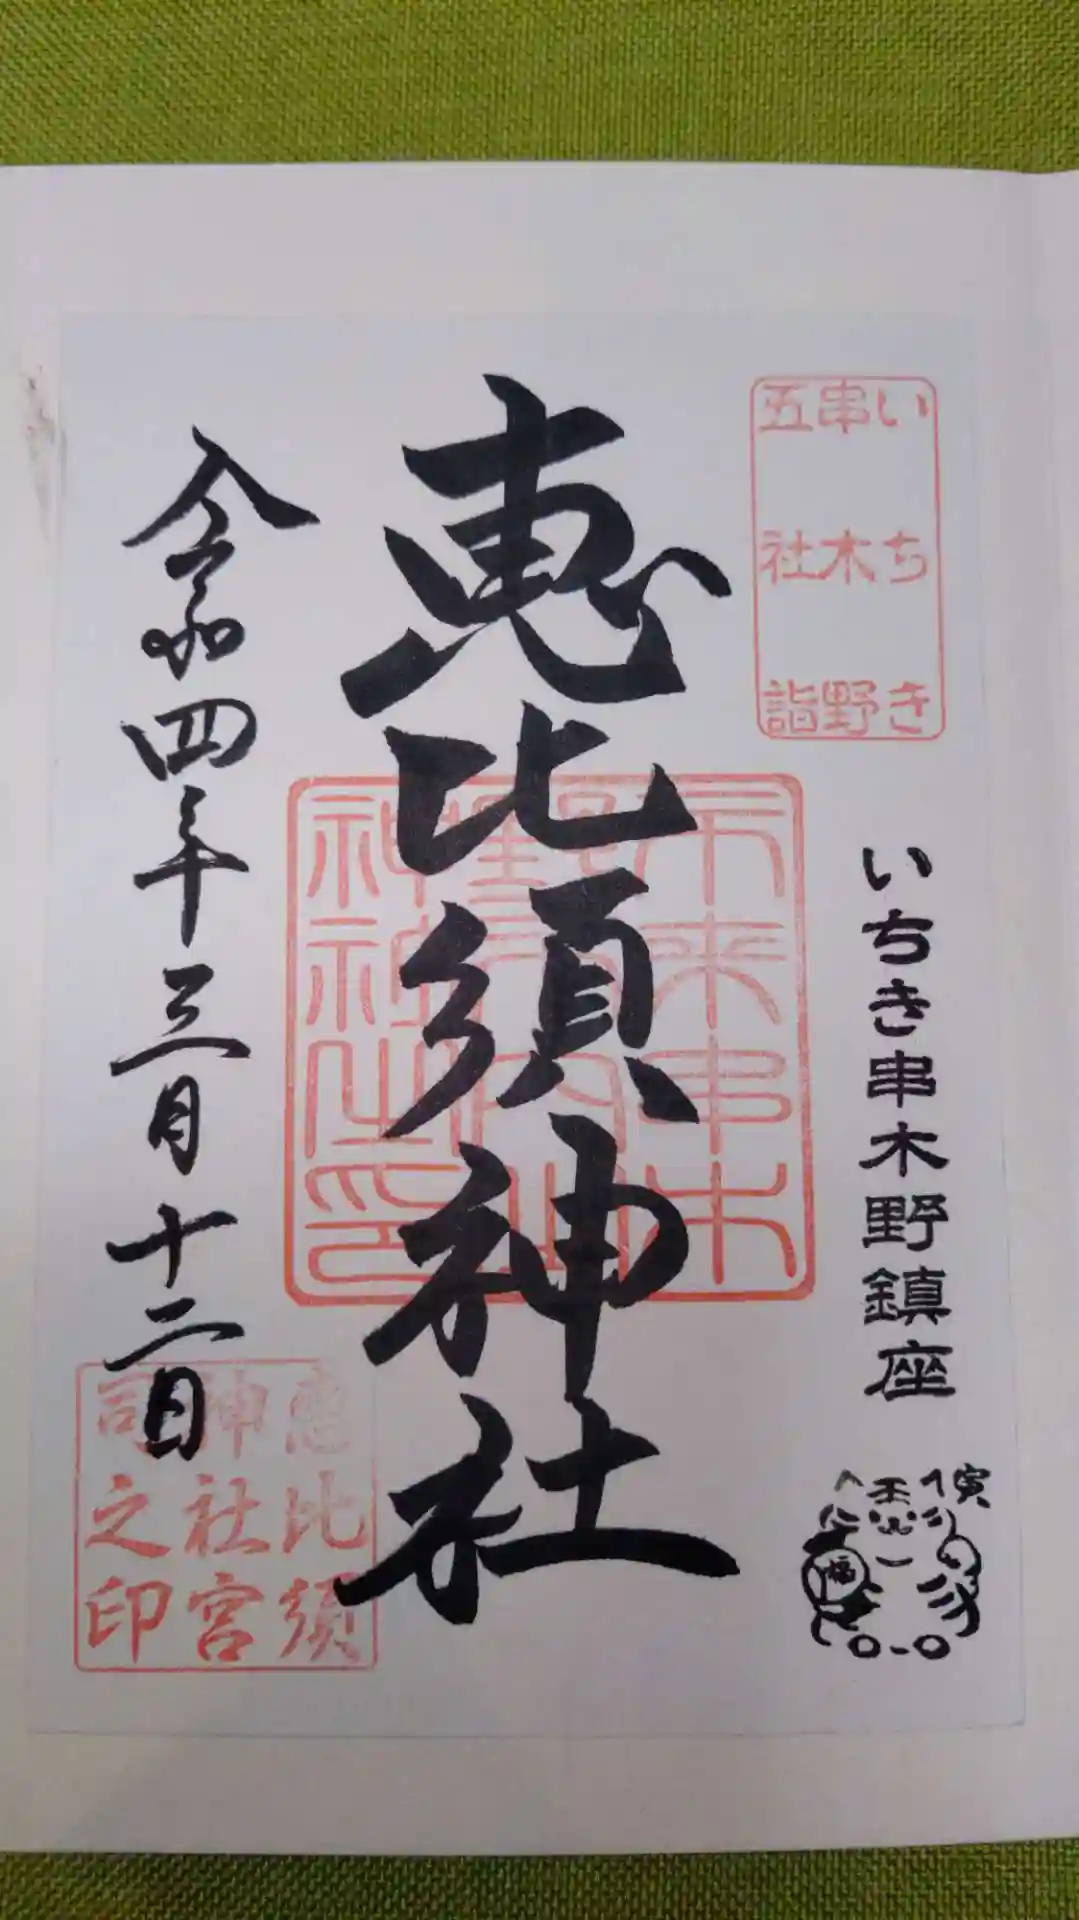 いちき
串木野
五社詣
いちき串木野鎮座
寅
福
恵比須神社
令和四年三月十二日
恵比須
神社宮
司之印